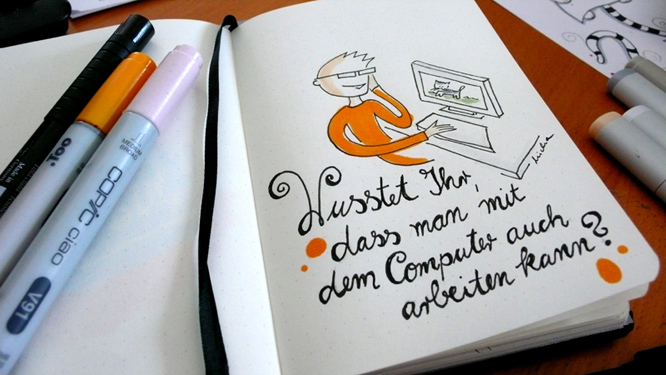 Wusstet Ihr,
dass man mit
dem Computer auch
arbeiten kann?
COPIC ciao
V91